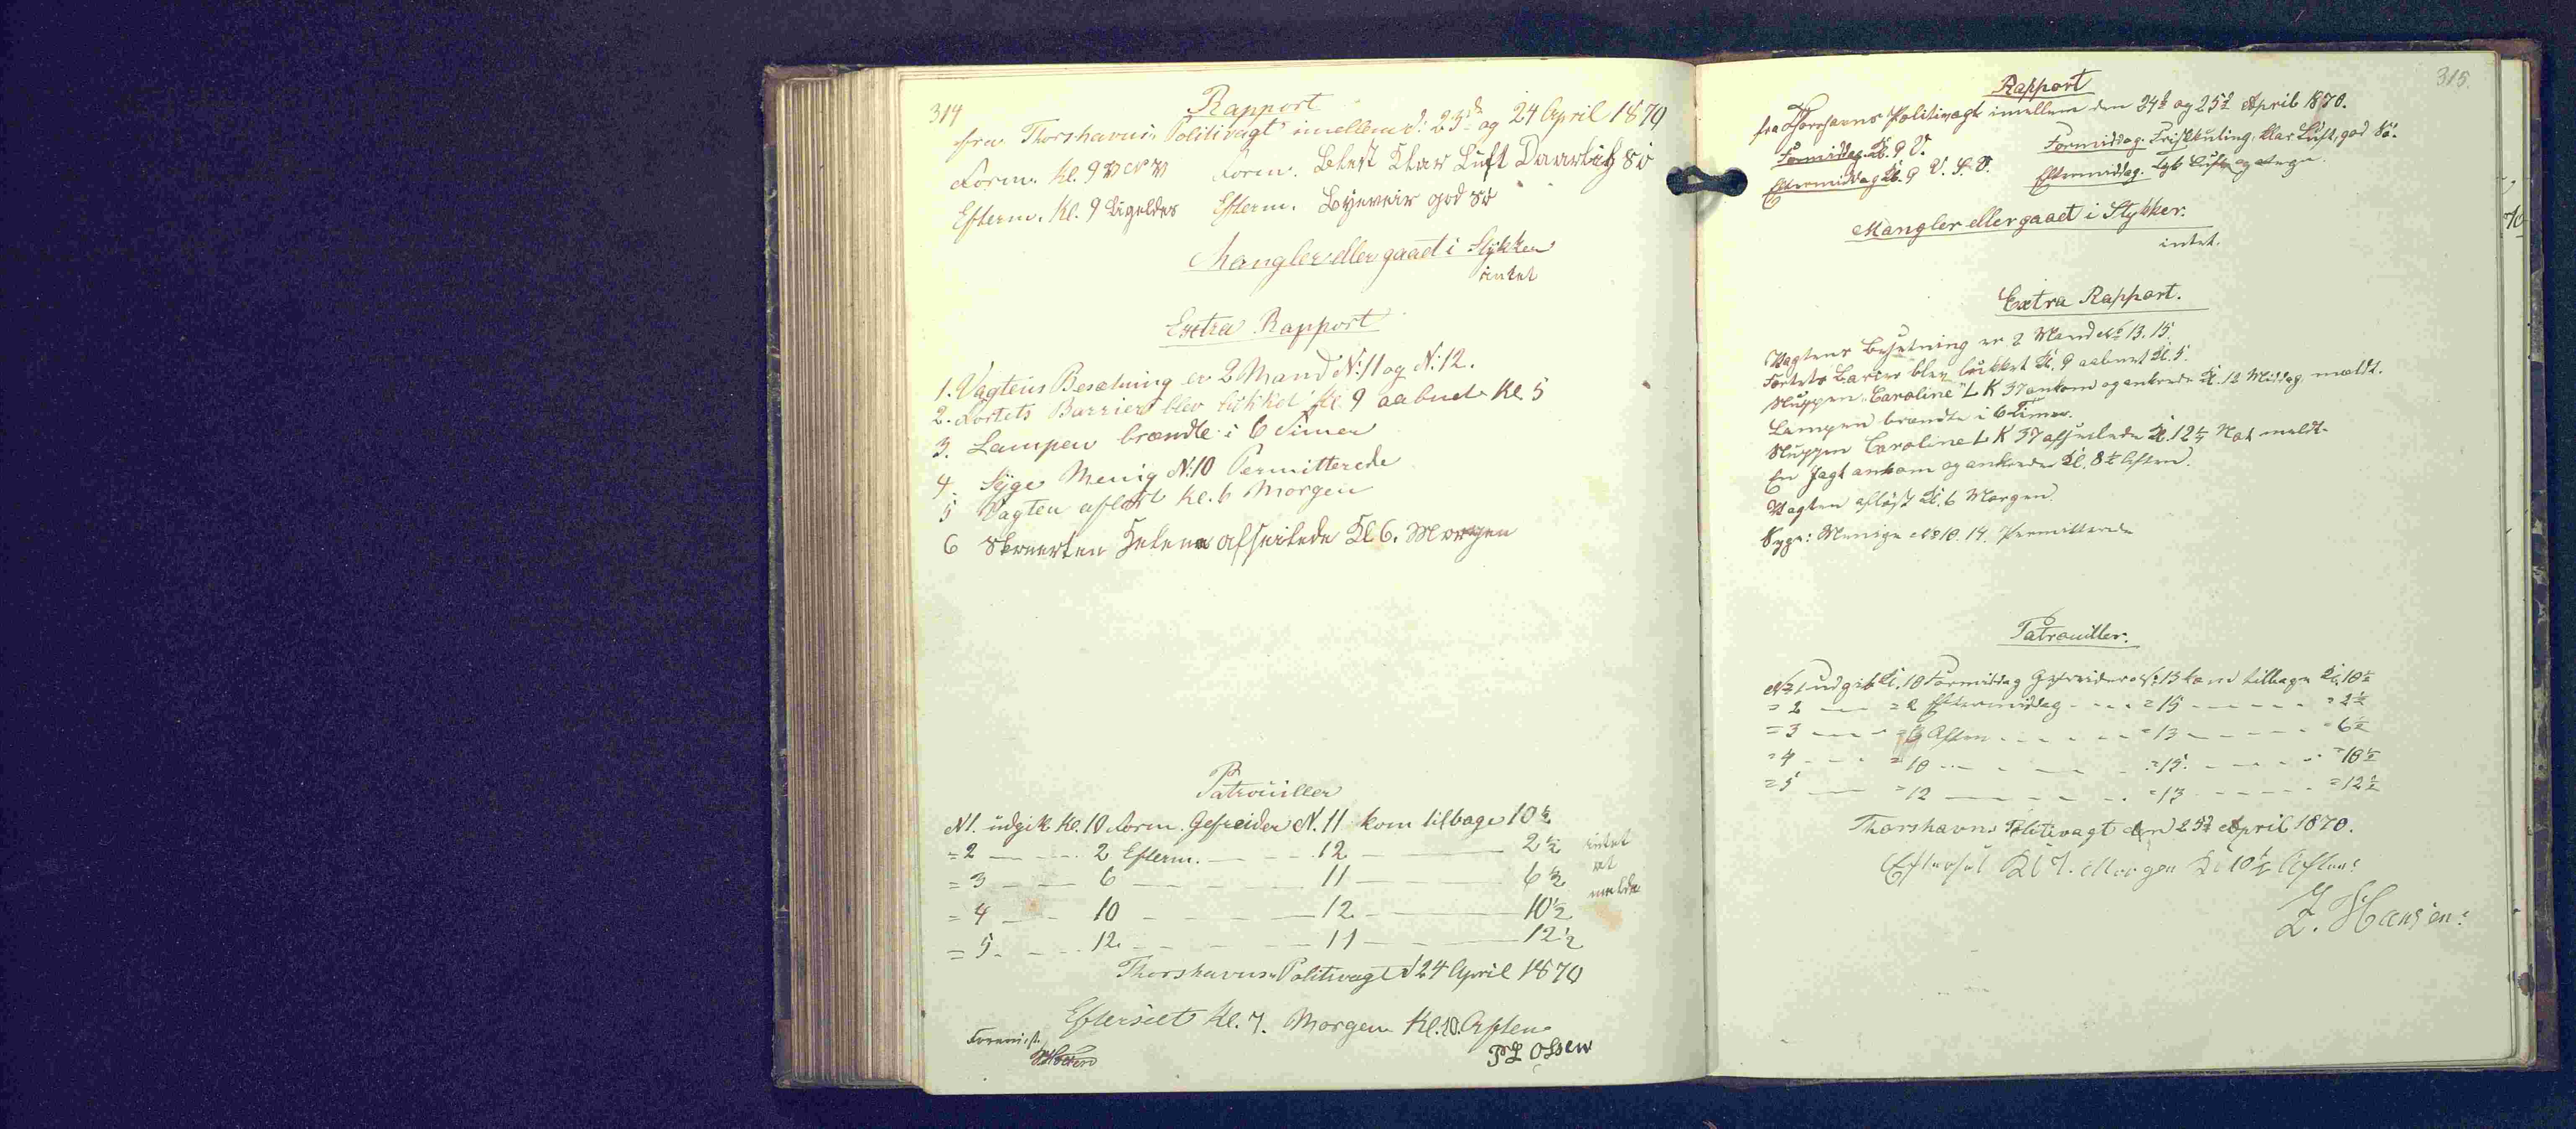 314
Rapport
fra Thorshavns Politivagt imellem d: 23de og 24 April 1870
Form. Kl. 9 V N V Form. Blest Klar Luft Daarlig Sö
Efterm. Kl. 9 Ligeldes Efterm. Byeveir god Sö
Mangler eller gaaet i Stykker
intet
Extra Rapport
1. Vagtens Besætning er 2 Mand N: 11 og N: 12.
2. Fortets Barriere blev lukket Kl. 9 aabnet Kl. 5
3. Lampen brændte i 6 Timer
4 Syge Menig N: 10 Permitterede
5 Vagten aflöst Kl. 6 Morgen
6 Skonerten Helene afseilede Kl 6. Morgen
Patrouiller
N 1. udgik Kl. 10 Form. Gefreider N. 11 kom tilbage 10½
= 2 — — 2 Efterm. — — 12 — — 2½ intet
= 3 — — 6 — — 11 — — 6½ at
= 4 — — 10 — — 12 — — 10½ melde
= 5 — — 12 — — 11 — — 12½
Thorshavns Politivagt d 24 April 1870
Efterseet Kl. 7. Morgen Kl. 10. Aften
P L Olsen
315.
Rapport
fra Thorshavns Politivagt imellem den 24d og 25d April 1870.
Formiddag Kl. 9 V. Formiddag. Friskkuling, klar Luft, god Sö.
Eftermiddag Kl. 9 V. S. V. Eftermiddag. Tyk Luft og Regn.
Mangler eller gaaet i Stykker.
intet.
Extra Rapport.
Vagtens Besætning er 2 Mand No 13. 15.
Fortets Barier blev lukket Kl. 9 aabnet Kl. 5.
Sluppen "Caroline" L K 37 ankom og ankrede Kl. 12 Middag meldt.
Lampen brændte i 6 Timer.
Sluppen Caroline L K 37 afseilede Kl. 12½ Nat meldt.
En Jagt ankom og ankrede Kl. 8½ Aften.
Vagten aflöst Kl. 6 Morgen.
Syge: Menige No 10. 14. Permitterede
Patrouiller.
No 1 udgik Kl. 10 Formiddag Gefreider No 13 kom tilbage Kl. 10½
= 2 — — = 2 Eftermiddag - - - = 15 - - - - = 2½
= 3 — — = 6 Aften - - - - = 13 - - - - = 6½
= 4 - - - = 10 - - - - = 15. - - - - = 10½
= 5 — — = 12 — — - - = 13 - - - - = 12½
Thorshavns Politivagt den 25d April 1870.
Efterset Kl 7. Morgen Kl 10½ Aften:
Z. Hansen: